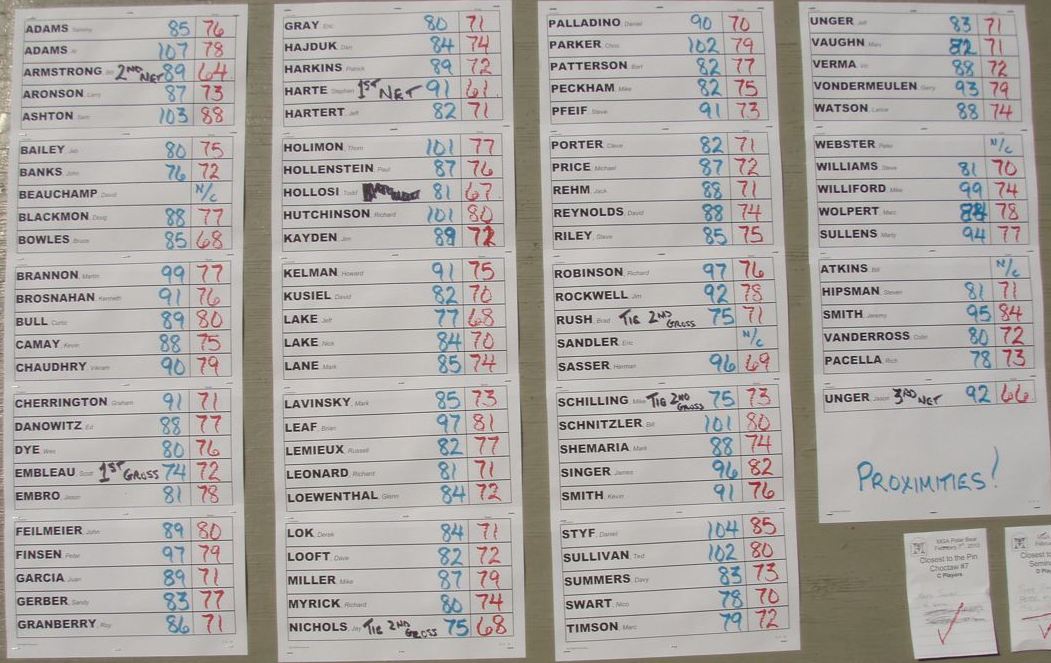 ADAMS 85 76
ADAMS 107 78
ARMSTRONG 2ND NET 89 64
ARONSON Larry 87 73
ASHTON Sam 103 88
BAILEY 80 75
BANKS John 76 72
BEAUCHAMP David N/C
BLACKMON Doug 88 77
BOWLES Bruce 85 68
BRANNON Martin 99 77
BROSNAHAN Kenneth 91 76
BULL Curtis 89 80
CAMAY Kevin 88 75
CHAUDHRY Vikram 90 79
CHERRINGTON Graham 91 71
DANOWITZ Ed 88 77
DYE Wes 80 76
EMBLEAU Scott 1ST GROSS 74 72
EMBRO Jason 81 78
FEILMEIER John 89 80
FINSEN Peter 97 79
GARCIA Juan 89 71
GERBER Sandy 83 77
GRANBERRY Roy 86 71
GRAY Eric 80 71
HAJDUK Dan 84 74
HARKINS Patrick 89 72
HARTE Stephen 1ST NET 91 61
HARTERT Jeff 82 71
HOLIMON Thom 101 77
HOLLENSTEIN Paul 87 76
HOLLOSI Todd 81 67
HUTCHINSON Richard 101 80
KAYDEN Jim 89 72
KELMAN Howard 91 75
KUSIEL David 82 70
LAKE Jeff 77 68
LAKE Nick 84 70
LANE Mark 85 74
LAVINSKY Mark 85 73
LEAF Brian 97 81
LEMIEUX Russell 82 77
LEONARD Richard 81 71
LOEWENTHAL Glenn 84 72
LOK Derek 84 71
LOOFT Dave 82 72
MILLER Mike 87 79
MYRICK Richard 80 74
NICHOLS Jay TIE 2ND GROSS 75 68
PALLADINO Daniel 90 70
PARKER Chris 102 79
PATTERSON Bert 82 77
PECKHAM Mike 82 75
PFEIF Steve 91 73
PORTER Cleve 82 71
PRICE Michael 87 72
REHM Jack 88 71
REYNOLDS David 88 74
RILEY Steve 85 75
ROBINSON Richard 97 76
ROCKWELL Jim 92 78
RUSH Brad TIE 2ND GROSS 75 71
SANDLER Eric N/C
SASSER Herman 96 69
SCHILLING Mike TIE 2ND GROSS 75 73
SCHNITZLER Bill 101 80
SHEMARIA Mark 88 74
SINGER James 96 82
SMITH Kevin 91 76
STYF Daniel 104 85
SULLIVAN Ted 102 80
SUMMERS Davy 83 73
SWART Nico 78 70
TIMSON Marc 79 72
UNGER Jeff 83 71
VAUGHN Marc 82 71
VERMA Vic 88 72
VONDERMEULEN Gerry 93 79
WATSON Lance 88 74
WEBSTER Peter N/C
WILLIAMS Steve 81 70
WILLIFORD Mike 99 74
WOLPERT Marc 78
SULLENS Marty 94 77
ATKINS Bill N/C
HIPSMAN Steven 81 71
SMITH Jeremy 95 84
VANDERROSS Colin 80 72
PACELLA Rich 78 73
UNGER Jason 3RD NET 92 66
PROXIMITIES!
MGA Polar Bear
February 7th, 2010
Closest to the Pin
Choctaw #7
C Players
MGA
Closest to
Semin
D Play